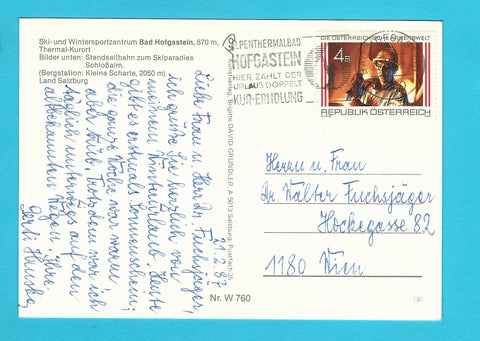 Ski- und Wintersportzentrum Bad Hofgastein, 870 m,
Thermal-Kurort
Bilder unten: Standseilbahn zum Skiparadies
Schloßalm.
(Bergstation: Kleine Scharte, 2050 m)
Land Salzburg
21.2.87
Liebe Frau u. Herr Dr. Fuchsjäger,
ich grüße Sie herzlich von
meinem Winterurlaub. Heute
gibt es erstmals Sonnenschein;
die ganze Woche war warm
aber trüb. Trotzdem war ich
täglich unterwegs auf den
altbekannten Wegen. Ihre
Gerti
Brigitte DAVID-GRÜNDLER, A 5013 Salzburg, Postfach 35
Nr. W 760
ALPENTHERMALBAD
HOFGASTEIN
HIER ZÄHLT DER
URLAUB DOPPELT
KUR-ERHOLUNG
DIE ÖSTERREICHISCHE ARBEITSWELT
4S
REPUBLIK ÖSTERREICH
Herrn u. Frau
Dr. Walter Fuchsjäger
Hockegasse 82
1180 Wien